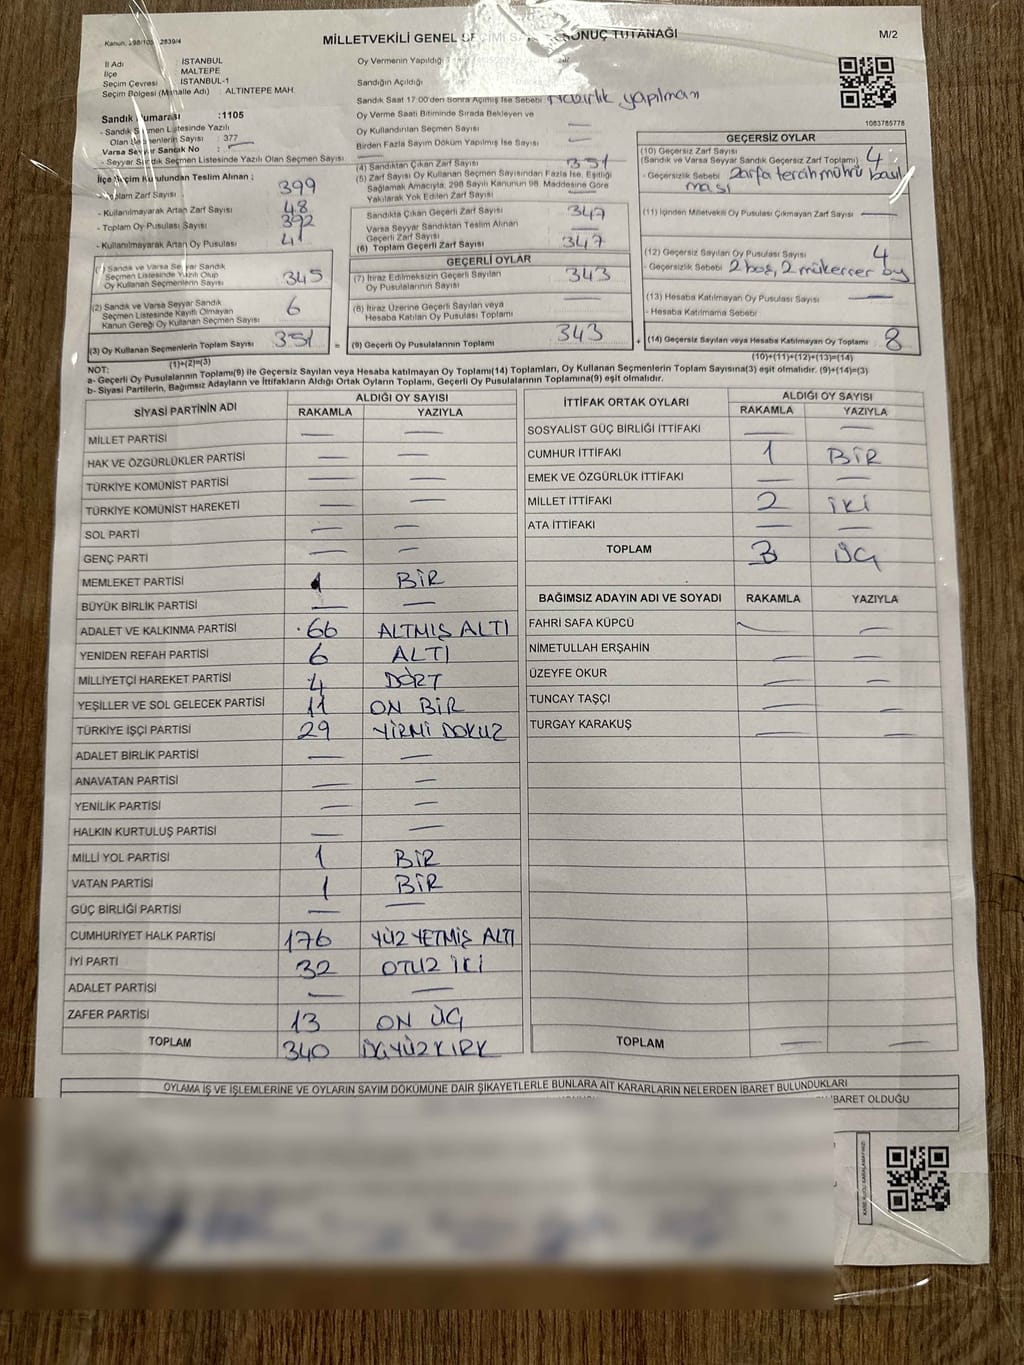 Kanun, 298/105 2839/4
MİLLETVEKİLİ GENEL SEÇİMİ SONUÇ TUTANAĞI
M/2
İl Adı : İSTANBUL
İlçe MALTEPE
Seçim Çevresi : İSTANBUL-1
Seçim Bölgesi (Mahalle Adı) : ALTINTEPE MAH.
Sandık Numarası :1105
- Sandık Seçmen Listesinde Yazılı
Olan Seçmenlerin Sayısı : 377
Varsa Seyyar Sandık No :
- Seyyar Sandık Seçmen Listesinde Yazılı Olan Seçmen Sayısı: —
İlçe Seçim Kurulundan Teslim Alınan ;
- Toplam Zarf Sayısı 399
- Kullanılmayarak Artan Zarf Sayısı 48
- Toplam Oy Pusulası Sayısı 392
- Kullanılmayarak Artan Oy Pusulası 41
(1) Sandık ve Varsa Seyyar Sandık
Seçmen Listesinde Yazılı Olup
Oy Kullanan Seçmenlerin Sayısı 345
(2) Sandık ve Varsa Seyyar Sandık
Seçmen Listesinde Kayıtlı Olmayan
Kanun Gereği Oy Kullanan Seçmen Sayısı 6
(3) Oy Kullanan Seçmenlerin Toplam Sayısı 351
(1)+(2)=(3)
Oy Vermenin Yapıldığı
Sandığın Açıldığı
Sandık Saat 17:00'den Sonra Açılmış İse Sebebi hazırlık yapılması
Oy Verme Saati Bitiminde Sırada Bekleyen ve
Oy Kullandırılan Seçmen Sayısı —
Birden Fazla Sayım Döküm Yapılmış İse Sayısı —
(4) Sandıktan Çıkan Zarf Sayısı 351
(5) Zarf Sayısı Oy Kullanan Seçmen Sayısından Fazla İse, Eşitliği
Sağlamak Amacıyla, 298 Sayılı Kanunun 98. Maddesine Göre
Yakılarak Yok Edilen Zarf Sayısı —
Sandıkta Çıkan Geçerli Zarf Sayısı 347
Varsa Seyyar Sandıktan Teslim Alınan
Geçerli Zarf Sayısı —
(6) Toplam Geçerli Zarf Sayısı 347
GEÇERLİ OYLAR
(7) İtiraz Edilmeksizin Geçerli Sayılan
Oy Pusulalarının Sayısı 343
(8) İtiraz Üzerine Geçerli Sayılan veya
Hesaba Katılan Oy Pusulası Toplamı —
= (9) Geçerli Oy Pusulalarının Toplamı 343
1083785778
GEÇERSİZ OYLAR
(10) Geçersiz Zarf Sayısı
(Sandık ve Varsa Seyyar Sandık Geçersiz Zarf Toplamı) 4
- Geçersizlik Sebebi Zarfa tercih mührü basıl
ması
(11) İçinden Milletvekili Oy Pusulası Çıkmayan Zarf Sayısı —
(12) Geçersiz Sayılan Oy Pusulası Sayısı 4
- Geçersizlik Sebebi 2 boş, 2 mükerrer oy
(13) Hesaba Katılmayan Oy Pusulası Sayısı —
- Hesaba Katılmama Sebebi
+ (14) Geçersiz Sayılan veya Hesaba Katılmayan Oy Toplamı 8
(10)+(11)+(12)+(13)=(14)
NOT:
a- Geçerli Oy Pusulalarının Toplamı(9) ile Geçersiz Sayılan veya Hesaba katılmayan Oy Toplamı(14) Toplamları, Oy Kullanan Seçmenlerin Toplam Sayısına(3) eşit olmalıdır. (9)+(14)=(3)
b- Siyasi Partilerin, Bağımsız Adayların ve İttifakların Aldığı Ortak Oyların Toplamı, Geçerli Oy Pusulalarının Toplamına(9) eşit olmalıdır.
SİYASİ PARTİNİN ADI ALDIĞI OY SAYISI
RAKAMLA YAZIYLA
MİLLET PARTİSİ — —
HAK VE ÖZGÜRLÜKLER PARTİSİ — —
TÜRKİYE KOMÜNİST PARTİSİ — —
TÜRKİYE KOMÜNİST HAREKETİ — —
SOL PARTİ — —
GENÇ PARTİ — —
MEMLEKET PARTİSİ 1 BİR
BÜYÜK BİRLİK PARTİSİ — —
ADALET VE KALKINMA PARTİSİ 66 ALTMIŞ ALTI
YENİDEN REFAH PARTİSİ 6 ALTI
MİLLİYETÇİ HAREKET PARTİSİ 4 DÖRT
YEŞİLLER VE SOL GELECEK PARTİSİ 11 ON BİR
TÜRKİYE İŞÇİ PARTİSİ 29 YİRMİ DOKUZ
ADALET BİRLİK PARTİSİ — —
ANAVATAN PARTİSİ — —
YENİLİK PARTİSİ — —
HALKIN KURTULUŞ PARTİSİ — —
MİLLİ YOL PARTİSİ 1 BİR
VATAN PARTİSİ 1 BİR
GÜÇ BİRLİĞİ PARTİSİ — —
CUMHURİYET HALK PARTİSİ 176 YÜZ YETMİŞ ALTI
İYİ PARTİ 32 OTUZ İKİ
ADALET PARTİSİ — —
ZAFER PARTİSİ 13 ON ÜÇ
TOPLAM 340 ÜÇYÜZKIRK
İTTİFAK ORTAK OYLARI ALDIĞI OY SAYISI
RAKAMLA YAZIYLA
SOSYALİST GÜÇ BİRLİĞİ İTTİFAKI — —
CUMHUR İTTİFAKI 1 BİR
EMEK VE ÖZGÜRLÜK İTTİFAKI — —
MİLLET İTTİFAKI 2 İKİ
ATA İTTİFAKI — —
TOPLAM 3 ÜÇ
BAĞIMSIZ ADAYIN ADI VE SOYADI RAKAMLA YAZIYLA
FAHRİ SAFA KÜPCÜ — —
NİMETULLAH ERŞAHİN — —
ÜZEYFE OKUR — —
TUNCAY TAŞÇI — —
TURGAY KARAKUŞ — —
TOPLAM — —
OYLAMA İŞ VE İŞLEMLERİNE VE OYLARIN SAYIM DÖKÜMÜNE DAİR ŞİKAYETLERLE BUNLARA AİT KARARLARIN NELERDEN İBARET BULUNDUKLARI
İBARET OLDUĞU